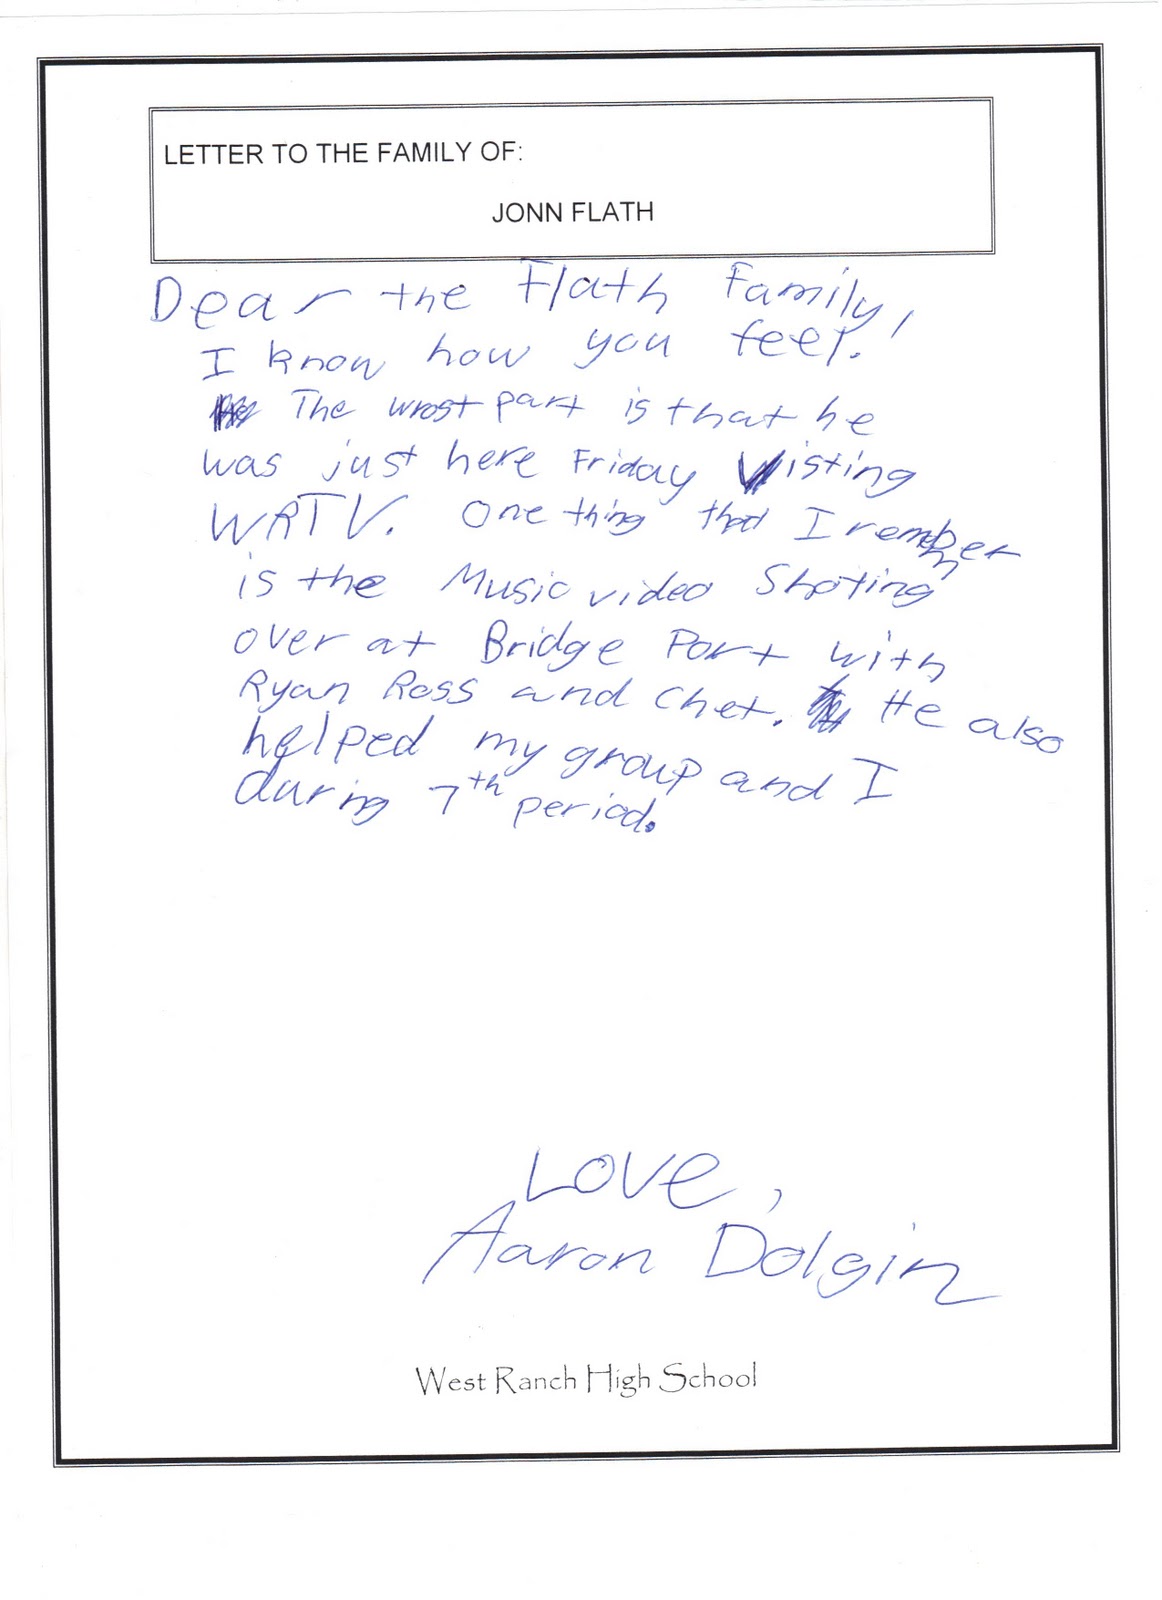 LETTER TO THE FAMILY OF:
JONN FLATH
Dear the Flath Family,
I know how you feel.
The wrost part is that he
was just here Friday Visting
WRTV. One thing that I rember
is the Music video Shoting
over at Bridge Port with
Ryan Ross and Chet. He also
helped my group and I
during 7th period.
Love,
Aaron Dolgin
West Ranch High School